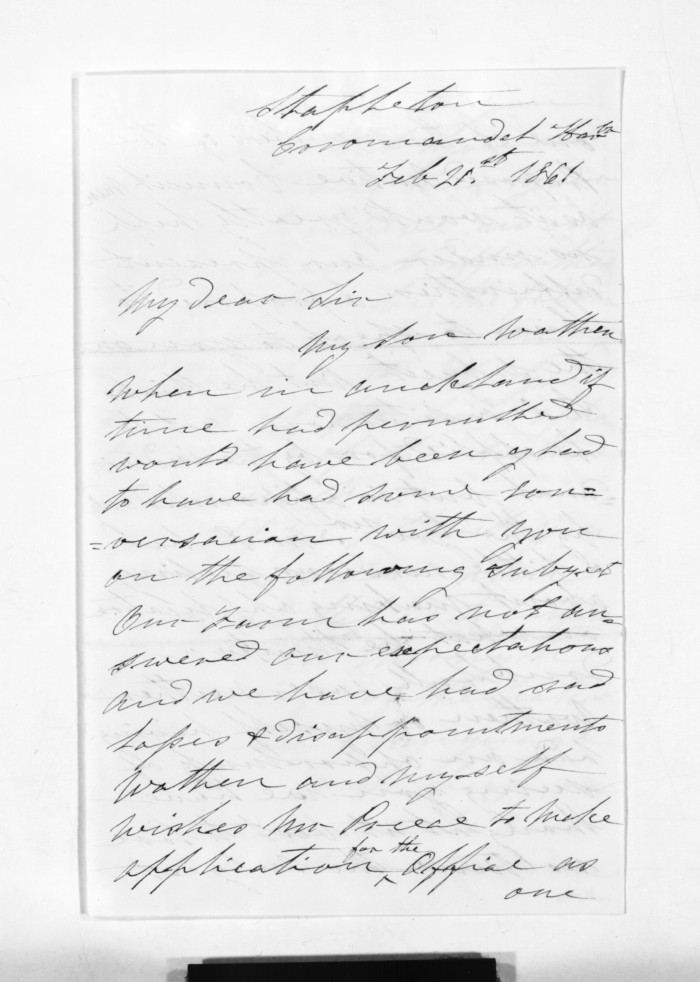 Stapleton
Coromandel Har<sup>br</sup>
Feb 21.st 1861
My dear Sir
My son Wathen
when in auckland if
time had permitted
would have been glad
to have had some con=
=versation with you
on the following Subject
Our Farm has not an=
swered our expectations
and we have had sad
losses & disappointments
Wathen and myself
wishes Mr Preece to make
application for the Office as
one